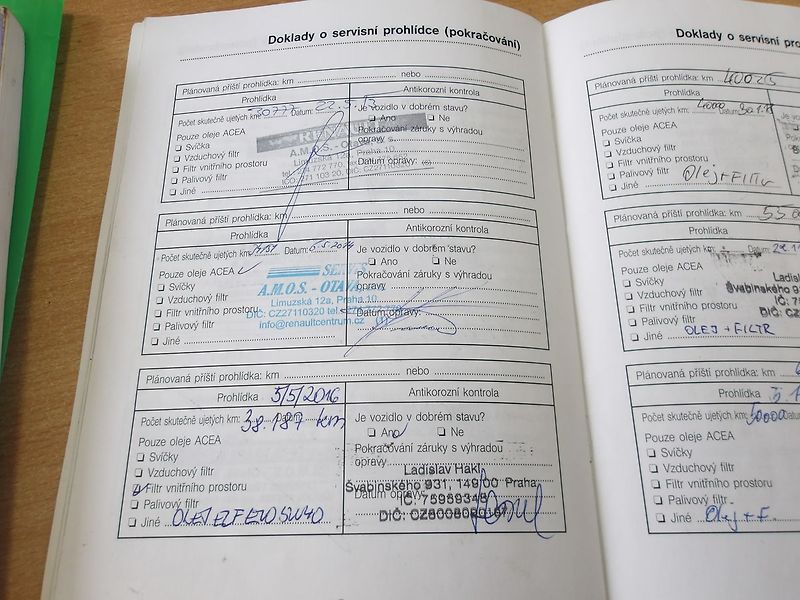 Doklady o servisní prohlídce (pokračování)
Plánovaná příští prohlídka: km nebo
Prohlídka Antikorozní kontrola
Počet skutečně ujetých km: 30777 Datum: 22.5.13 Je vozidlo v dobrém stavu?
Pouze oleje ACEA Ano Ne
Svíčka Pokračování záruky s výhradou
Vzduchový filtr opravy
Filtr vnitřního prostoru Datum opravy:
Palivový filtr
Jiné
RENAULT
A.M.O.S. - OTA
Limuzská 12a, Praha 10
Plánovaná příští prohlídka: km nebo
Prohlídka Antikorozní kontrola
Počet skutečně ujetých km: Datum: 6.5.2014 Je vozidlo v dobrém stavu?
Pouze oleje ACEA Ano Ne
Svíčky Pokračování záruky s výhradou
Vzduchový filtr opravy
Filtr vnitřního prostoru Datum opravy:
Palivový filtr
Jiné
A.M.O.S. - OTAVA
Limuzská 12a, Praha 10
DIČ: CZ27110320 tel.
info@renaultcentrum.cz
Plánovaná příští prohlídka: km nebo
Prohlídka 5/5/2016 Antikorozní kontrola
Počet skutečně ujetých km: 38.187 km Datum: Je vozidlo v dobrém stavu?
Pouze oleje ACEA Ano Ne
Svíčky Pokračování záruky s výhradou
Vzduchový filtr opravy
Filtr vnitřního prostoru Datum opravy:
Palivový filtr
Jiné OLEJ ELF EVO 5W40
Ladislav Hakl
Švabinského 931, 149/00 Praha
IČ: 75959348
Doklady o servisní pro
Plánovaná příští prohlídka: km
Prohlídka
Počet skutečně ujetých km: Datum:
Pouze oleje ACEA
Svíčka
Vzduchový filtr
Filtr vnitřního prostoru
Palivový filtr Olej + Filtr
Jiné
Plánovaná příští prohlídka: km
Prohlídka
Počet skutečně ujetých km: Datum:
Pouze oleje ACEA
Svíčky
Vzduchový filtr
Filtr vnitřního prostoru
Palivový filtr
Jiné OLEJ + FILTR
Švabinského 93
Plánovaná příští prohlídka: km
Prohlídka
Počet skutečně ujetých km:
Pouze oleje ACEA
Svíčky
Vzduchový filtr
Filtr vnitřního prostoru
Palivový filtr
Jiné Olej + F.